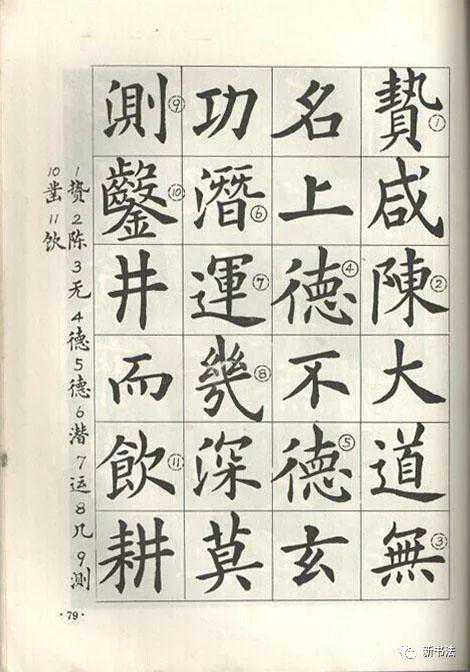 贄①咸陳②大道無③
名上德④不德⑤玄
功潛⑥運⑦幾⑧深莫
測⑨鑿⑩井而飲⑪耕
1贽2陈3无4德5德6潜7运8几9测
10凿11饮
·79·
新书法